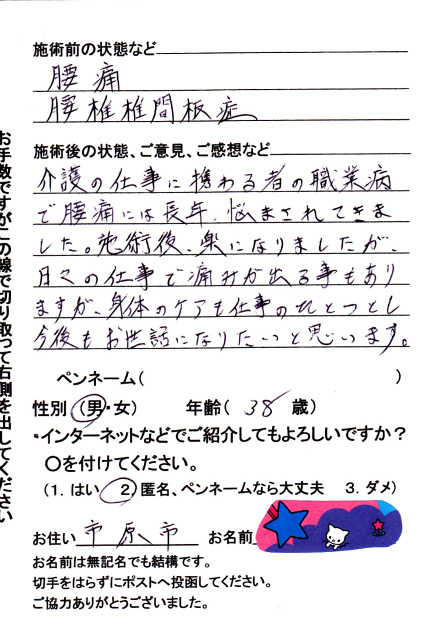 施術前の状態など
腰痛
腰椎椎間板症
施術後の状態、ご意見、ご感想など
介護の仕事に携わる者の職業病
で腰痛には長年、悩まされてきま
した。施術後、楽になりましたが、
日々の仕事で痛みが出る事もあり
ますが、身体のケアも仕事のひとつとし
今後もお世話になりたいと思います。
ペンネーム( )
性別(男・女) 年齢( 38 歳)
・インターネットなどでご紹介してもよろしいですか?
○を付けてください。
(1. はい 2. 匿名、ペンネームなら大丈夫 3. ダメ)
お住い 市原市 お名前
お名前は無記名でも結構です。
切手をはらずにポストへ投函してください。
ご協力ありがとうございました。
お手数ですがこの線で切り取って右側を出してください